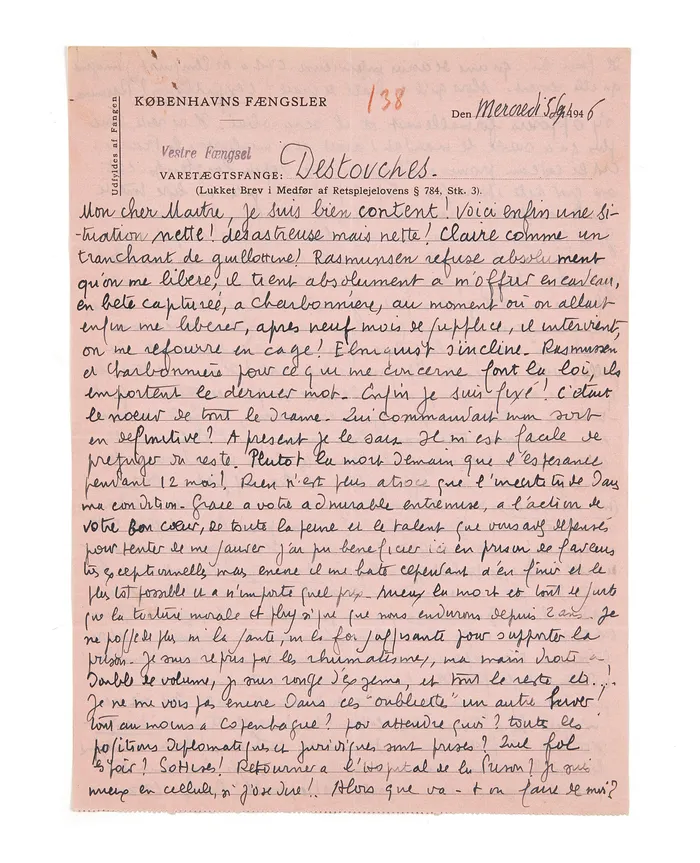 Udfyldes af Fangen
KØBENHAVNS FÆNGSLER
138
Den Mercredi 194 6
Vestre Fængsel
VARETÆGTSFANGE: Destouches.
(Lukket Brev i Medfør af Retsplejelovens § 784, Stk. 3).
Mon cher Maitre, Je suis bien content! Voici enfin une si-
-tuation nette! désastreuse mais nette! Claire comme un
tranchant de guillotine! Rasmunsen refuse absolument
qu'on me libère, il tient absolument a m'offrir en cadeau,
en bete capturée, a Charbonnière, au moment où on allait
enfin me libérer, après neuf mois de supplice, il intervient,
on me refourre en cage! Elmquist s'incline. Rasmussen
et Charbonnière pour ce qui me concerne font la loi, ils
emportent le dernier mot. Enfin je suis fixé! C'était
le noeur de tout le drame. Qui commandait mon sort
en definitive? A present je le sais. Il m'est facile de
prejuger du reste. Plutot la mort demain que l'espérance
pendant 12 mois! Rien n'est plus atroce que l'incertitude dans
ma condition. Grace a votre admirable entremise, a l'action de
votre bon cœur, de toute la peine et le talent que vous avez depensés
pour tenter de me sauver j'ai pu beneficier ici en prison de faveurs
très exceptionnelles mais encore il me hate cependant d'en finir et le
plus tot possible et a n'importe quel prix. Mieux la mort et tout de suite
que la torture morale et physique que nous endurons depuis 2 ans. Je
ne possède plus ni la santé, ni la foi suffisante pour supporter la
prison. Je suis repris par les rhumatismes, ma main droite a
doublé de volume, je suis rongé d'exzema, et tout le reste etc...
Je ne me vois pas encore dans ces "oubliette" un autre hiver!
tout au moins a Copenhague? pour attendre quoi? toutes les
positions diplomatiques et juridiques sont prises? Quel fol
espoir? Sottises! Retourner a l'Hospital de la Prison? Je suis
mieux en cellule, si j'ose dire!. Alors que va-t on faire de moi?